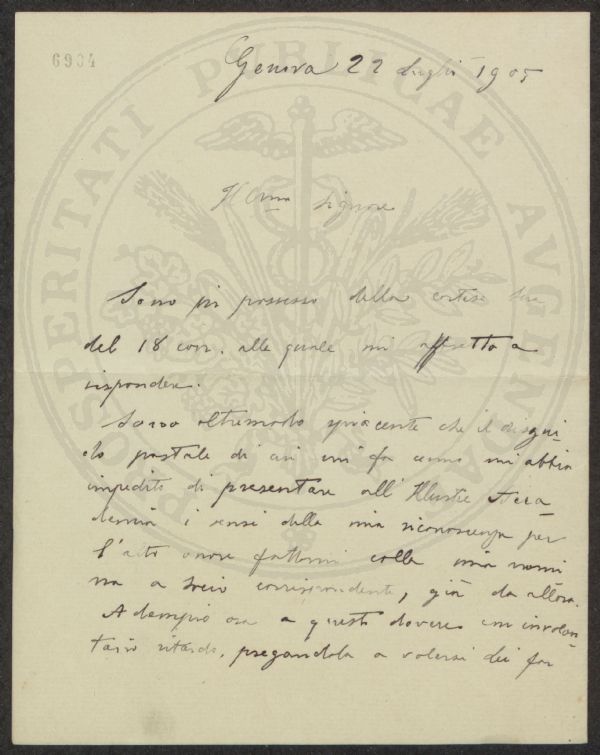 6904
Genova 22 Luglio 1905
PROSPERITATI PUBLICAE AVGENDAE
Ill.mo Signore
Sono in possesso della cortese sua
del 18 corr. alla quale mi affretto a
rispondere.
Sono oltremodo spiacente che il disgui-
do postale di cui mi fa cenno mi abbia
impedito di presentare all'Illustre Acca-
demia i sensi della mia riconoscenza per
l'alto onore fattomi colla mia nomi
na a socio corrispondente, già da allora.
Adempio ora a questo dovere con involon-
tario ritardo, pregandola a volersi dei far